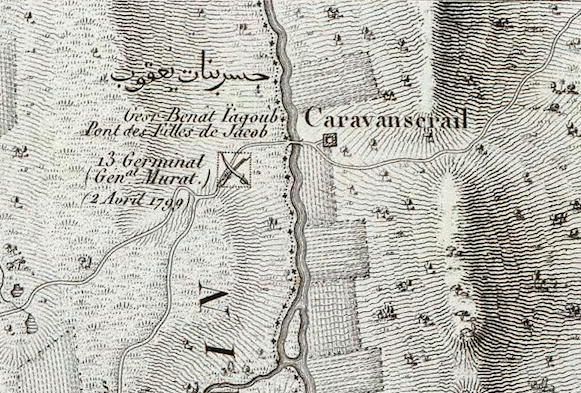 جسر بنات يعقوب
Gesr-Benat Yagoub
Pont des Filles de Jacob
Caravanserail
13 Germinal
(Gen.al Murat.)
(2 Avril 1799)
N
I